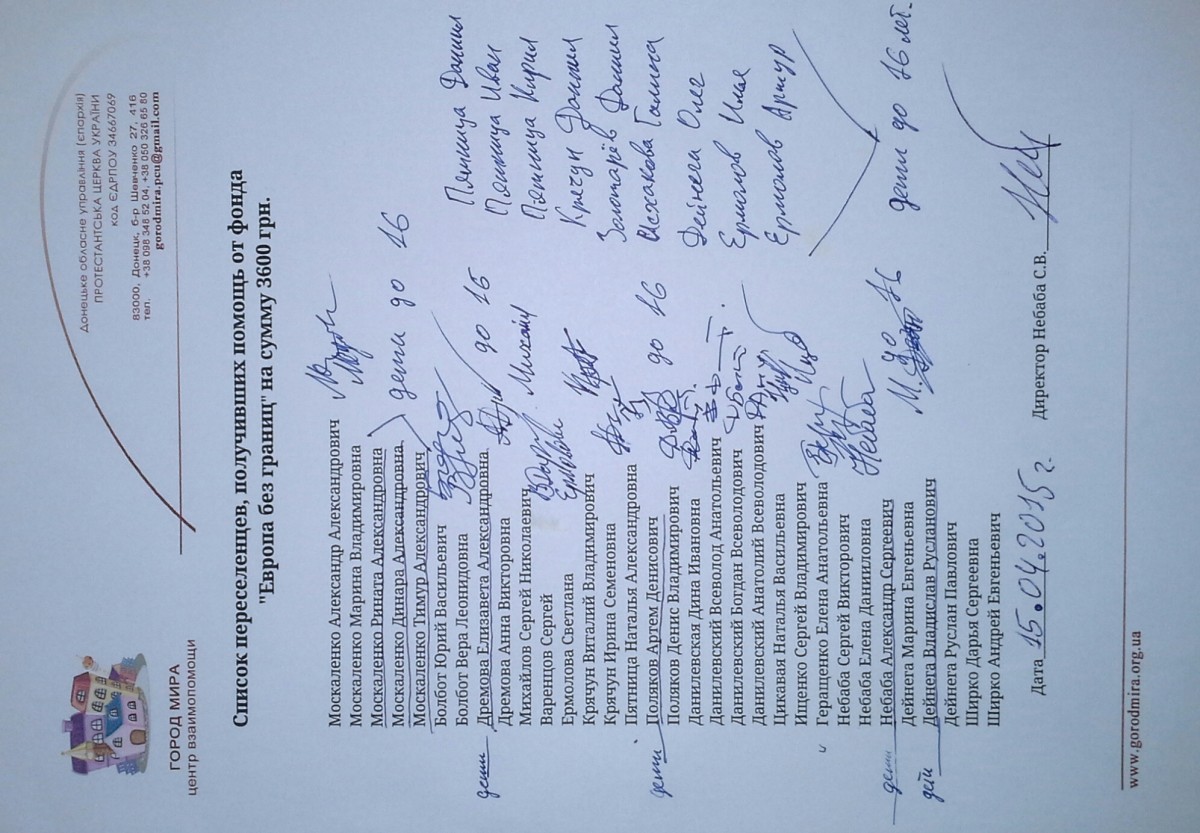 ГОРОД МИРА
центр взаимопомощи
Донецьке обласне управління (єпархія)
ПРОТЕСТАНТСЬКА ЦЕРКВА УКРАЇНИ
код ЄДРПОУ 34667069
83000, Донецк, б-р Шевченко 27, 416
тел. +38 098 348 52 04, +38 050 326 65 80
gorodmira.pcu@gmail.com
Список переселенцев, получивших помощь от фонда
"Европа без границ" на сумму 3600 грн.
Москаленко Александр Александрович
Москаленко Марина Владимировна
Москаленко Рината Александровна
Москаленко Динара Александровна
Москаленко Тимур Александрович
дети до 16
Болбот Юрий Васильевич
Болбот Вера Леонидовна
дети Дремова Елизавета Александровна до 16
Дремова Анна Викторовна
Михайлов Сергей Николаевич
Варенцов Сергей
Ермолова Светлана
Крячун Виталий Владимирович
Крячун Ирина Семеновна
Пятница Наталья Александровна
дети Поляков Артем Денисович до 16
Поляков Денис Владимирович
Данилевская Дина Ивановна
Данилевский Всеволод Анатольевич
Данилевский Богдан Всеволодович
Данилевский Анатолий Всеволодович
Цикавая Наталья Васильевна
Ищенко Сергей Владимирович
Герленко Елена Анатольевна
Небаба Сергей Викторович
Небаба Елена Данииловна
дети Небаба Александр Сергеевич до 16
Дейнега Марина Евгеньевна
Дейнега Владислав Русланович
Дейнега Руслан Павлович
Ширко Дарья Сергеевна
Ширко Андрей Евгеньевич
Пятница Даниил
Пятница Иван
Пятница Кирил
Крячун Даниил
Даниил
Исхакова Галина
Дейнега Олег
Ермолов Илья
Ермолов Артур
дети до 16 лет.
Дата 15.04.2015 г. Директор Небаба С.В.
www.gorodmira.org.ua